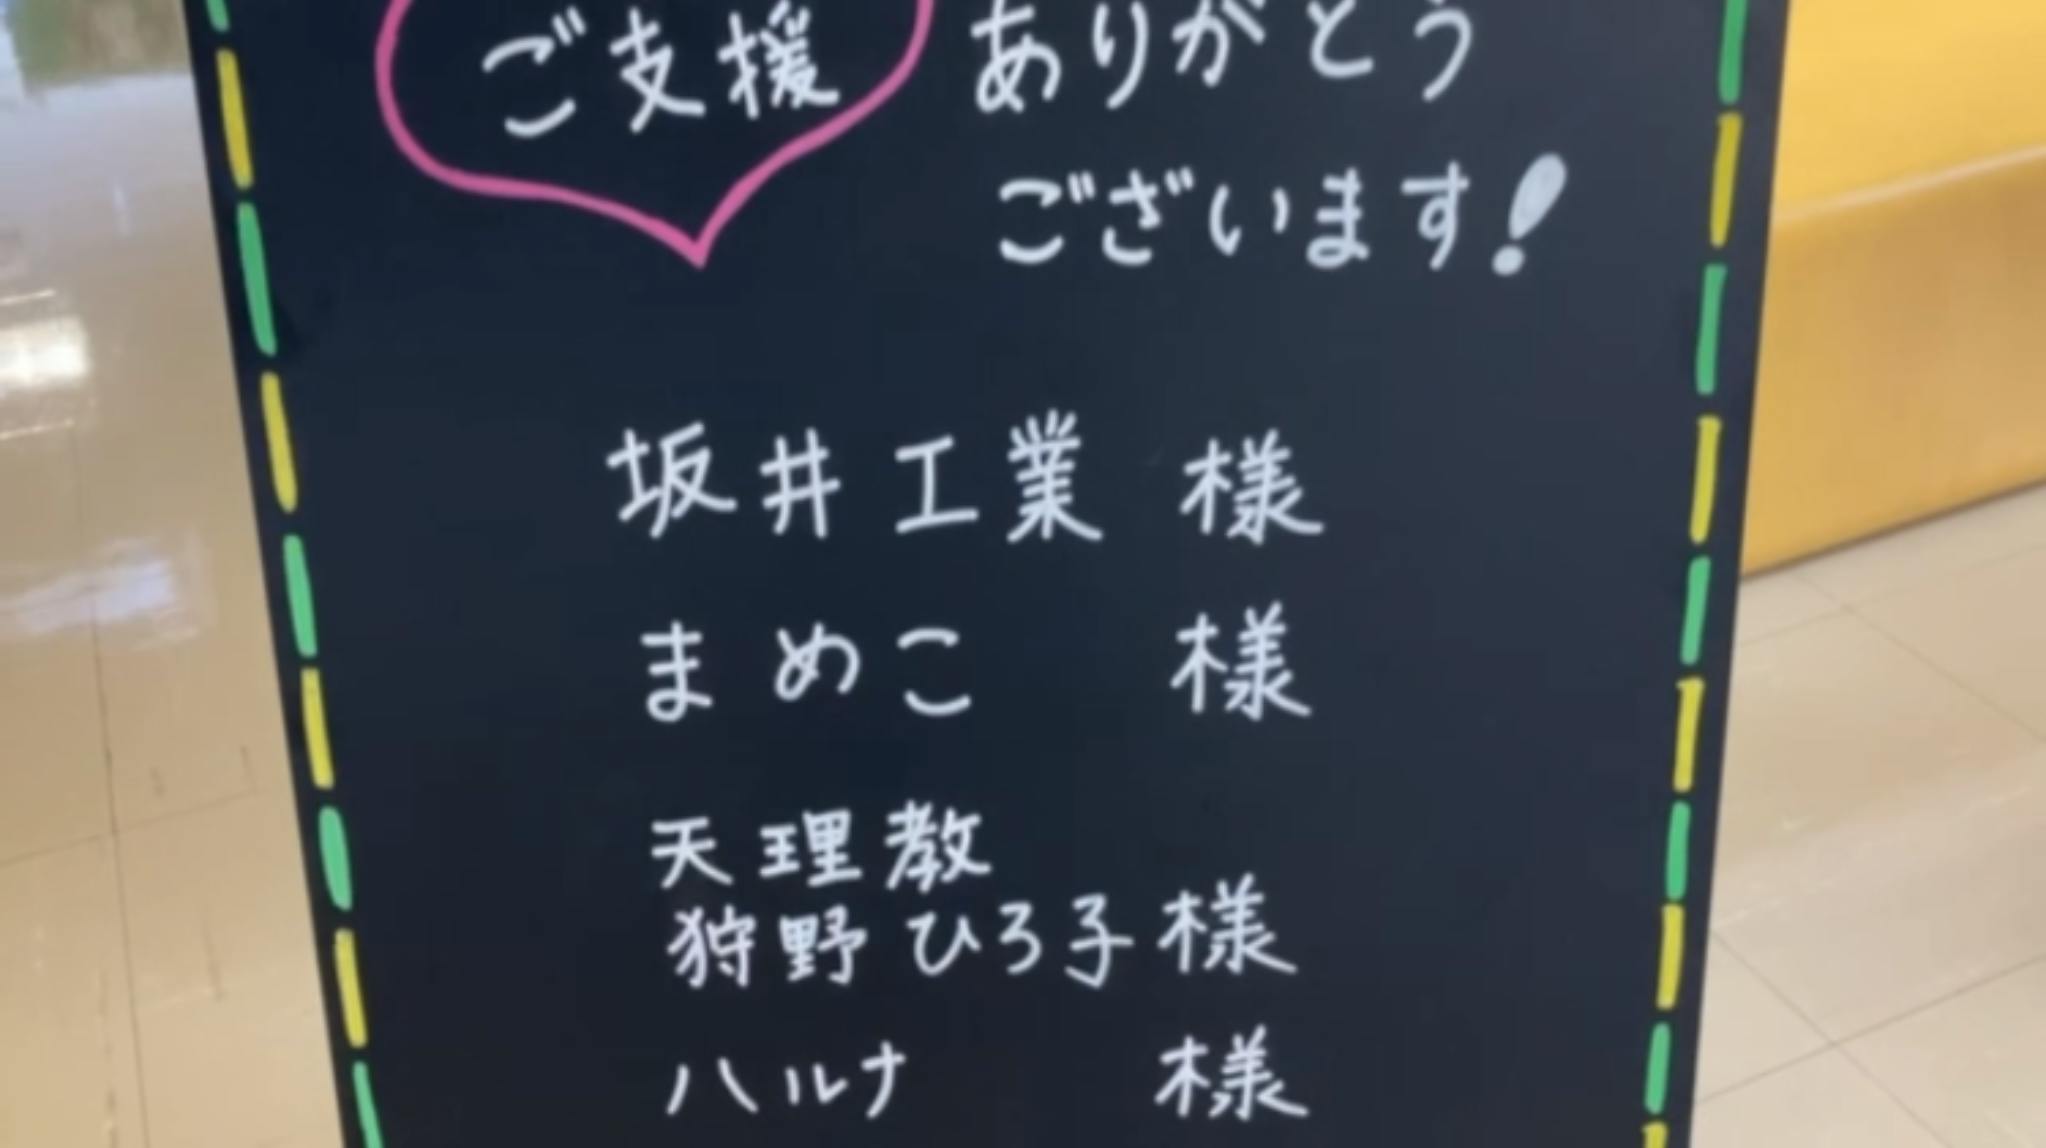 ご支援 ありがとう
ございます!
坂井工業 様
まめこ 様
天理教
狩野ひろ子様
ハルナ 様